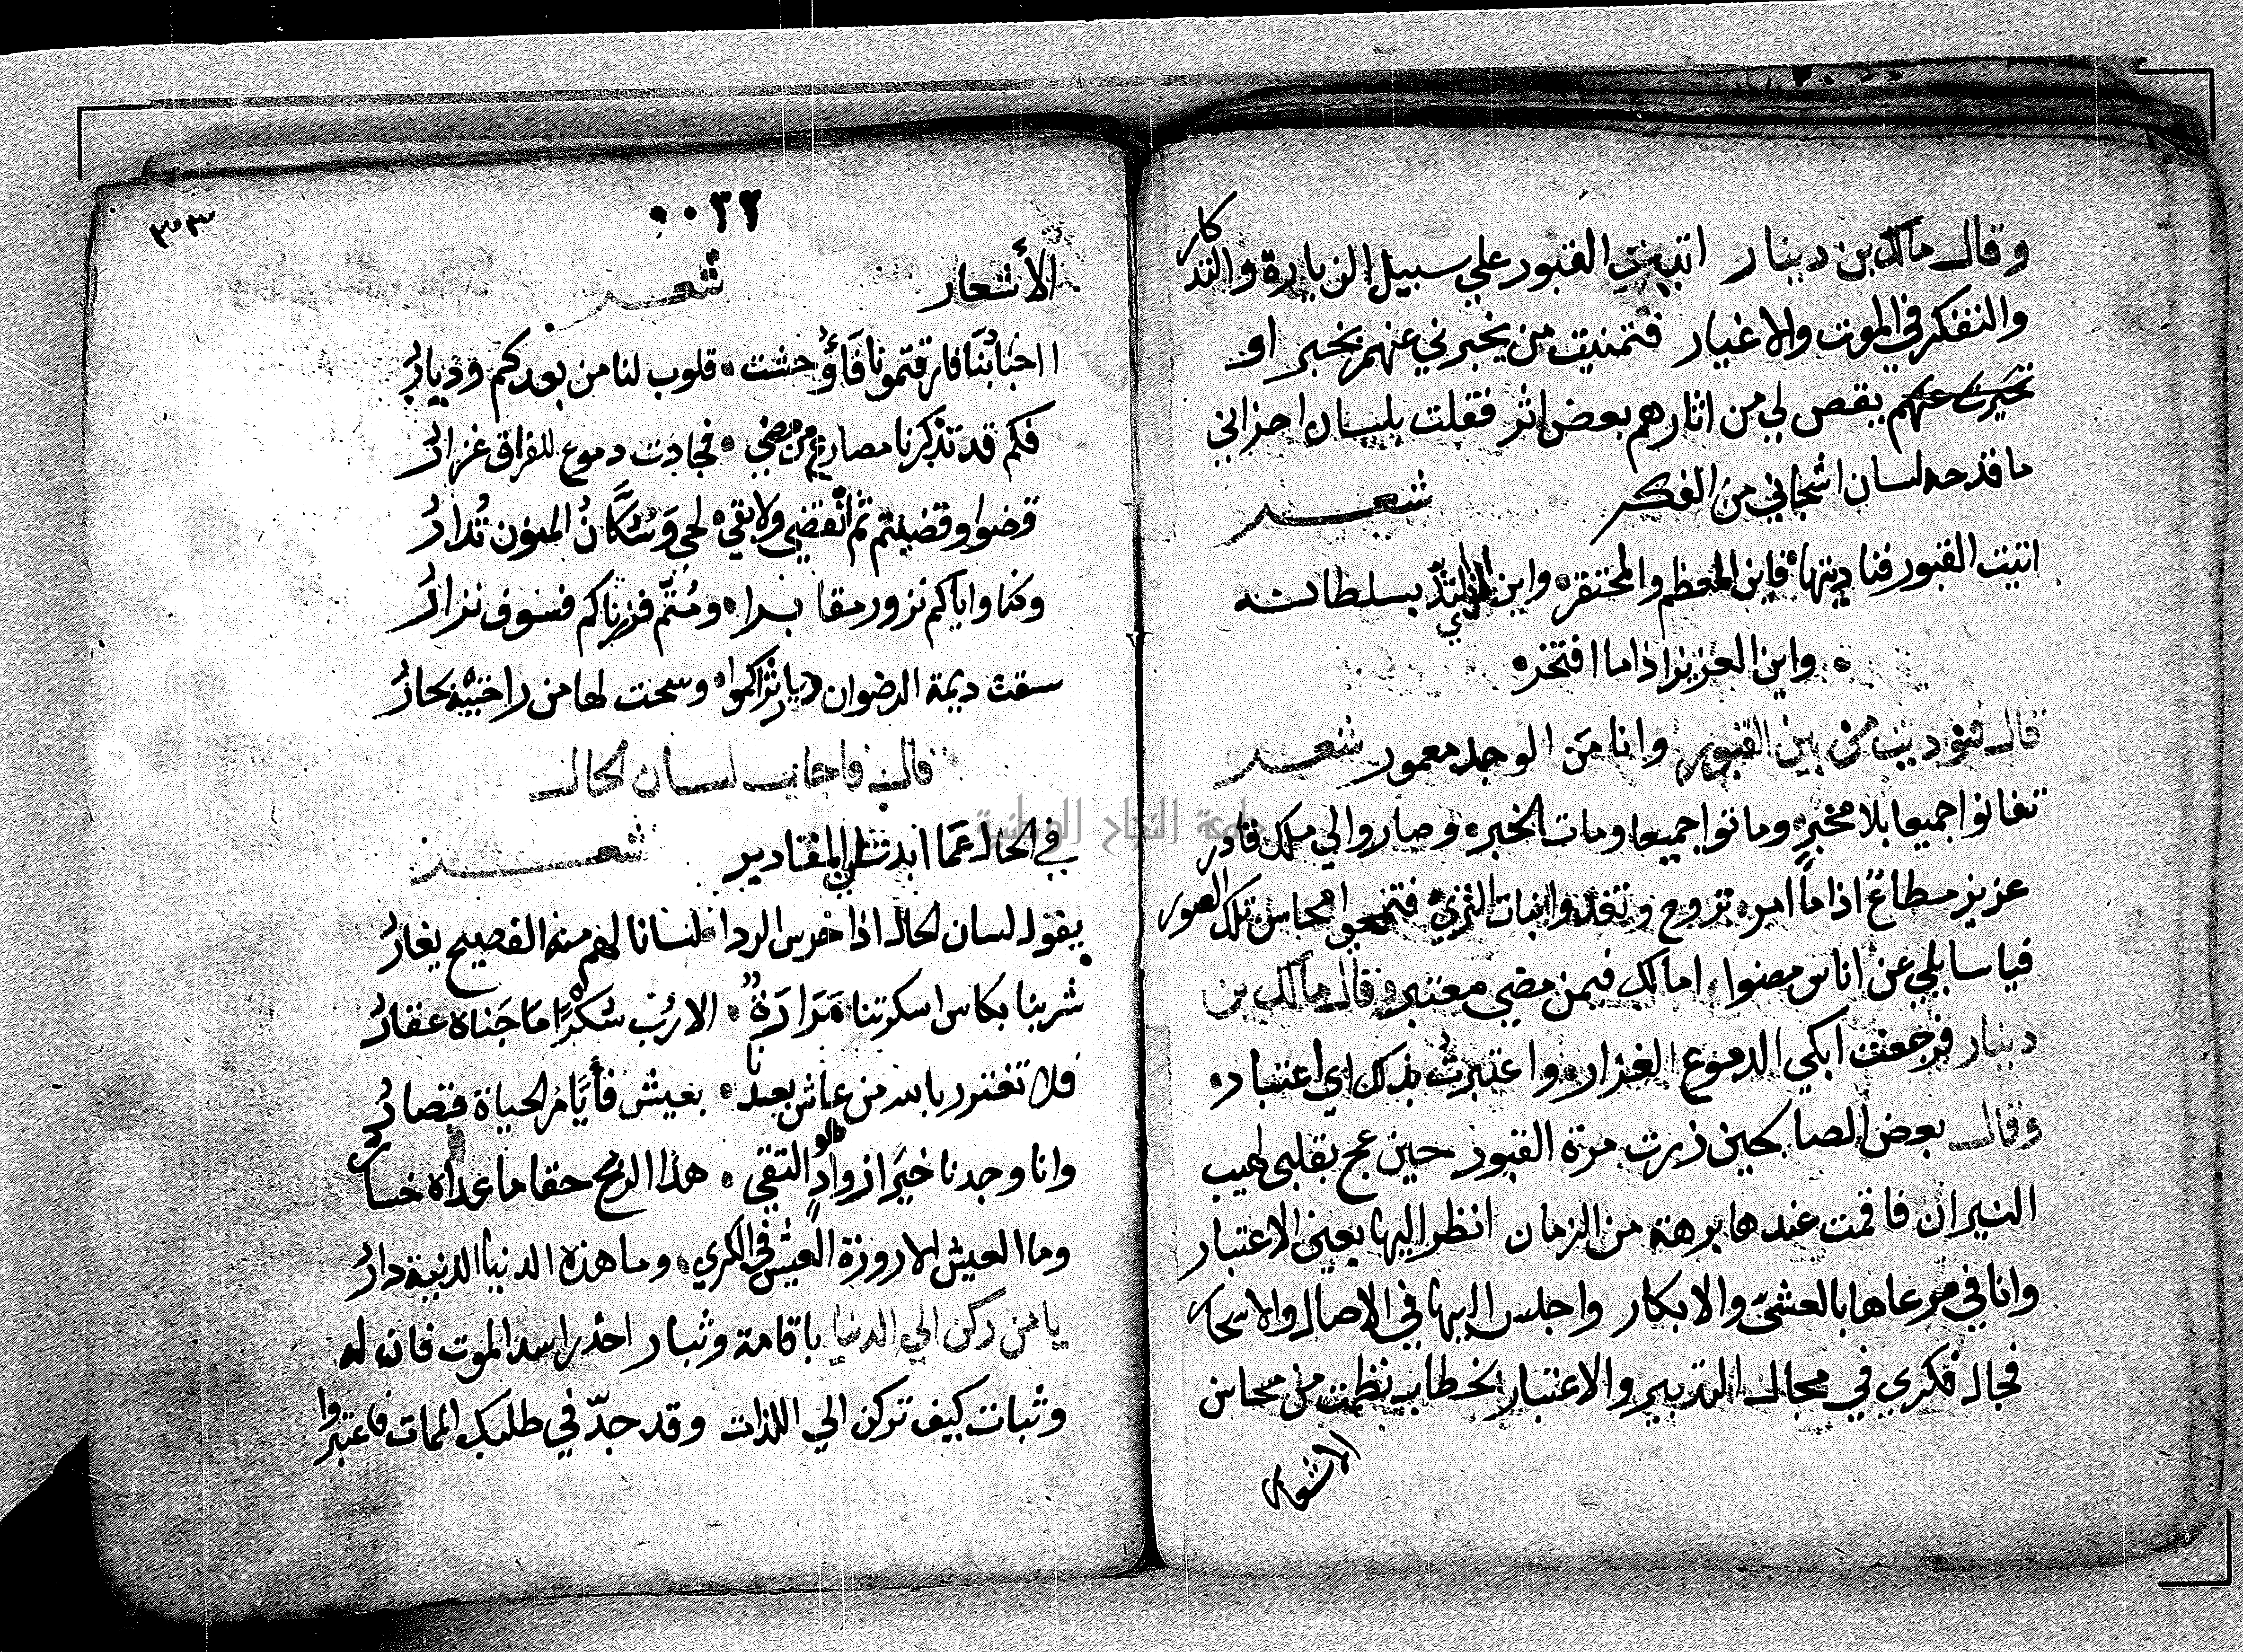 وقال مالك بن دينار اتيت القبور علي سبيل الزيارة والتذكار
والتفكر في الموت والاغيار فتمنيت من يخبرني عنهم بخبر او
يقص لي من اثارهم بعض اثر فقلت بلسان احزاني
ما قدحه لسان اشجاني من الفكر شعر
اتيت القبور فناديتها فاين المعظم والمحتقر واين بسلطانه
واين العزيز اذا ما افتخر
قال فنوديت من بين القبور وانا من الوجد معمور شعر
تفانوا جميعا بلا مخبر وماتوا جميعا ومات الخبر وصاروا الي ملك قادر
عزيز مطاع اذا ما امر تروح وتغدوا بنات الثري فتمحي محاسن تلك الصور
فيا سايلي عن اناس مضوا امالك فيمن مضي معتبر وقال مالك بن
دينار فرجعت ابكي الدموع الغزار واعتبرت بذلك اي اعتبار
وقال بعض الصالحين زرت مرة القبور حين عج بقلبي لهيب
النيران فاقمت عندها برهة من الزمان انظر اليها بعين الاعتبار
وانا في مرعاها بالعشي والابكار واجلس اليها في الاصال والاسحار
فجال فكري في مجال التدبير والاعتبار بخطاب نظمت من محاسن
الاشعار
٠٠٣٢
٣٥٣
الأشعار شعر
ااحبابُنا فارقتمونا فأوحشت قلوب لنا من بعدكم وديارُ
فكم قد تذكرنا مصارع من مضي فجادت دموع للفراق غزارُ
قضوا وقضيتم ثم انقضي ولا بقي لحي وسُكّانُ المنون تُدارُ
وكنا واياكم نزور مقابرا ومُتّم فزرناكم فسوف نزارُ
سقت ديمة الرضوان ديار تراكموا وسحت لها من راحتيه بحارُ
قال فاجاب لسان الحال
في الحال عما ابدته المقادير شعر
يقول لسان الحال اذا خرس الردا لسانا لهم منه الفصيح يغارُ
شربنا بكاس اسكرتنا مَرَارَةً الا رُب سُكرًا ما جَناه عقارُ
فلا تغترر بالله من عاش بعدنا بعيش فأيّام الحياة قصارُ
وانا وجدنا خيرَ ازوادِ التقي هذا الربح حقا ما عداه خسارُ
وما العيش الا روزة العيش في الكري وما هذه الدنيا الدنية دارُ
يا من ركن الي الدنيا باقامة وثبار احذر اسد الموت فان له
وثبات كيف تركن الي اللذات وقد جدّ في طلبك الممات فاعتبروا